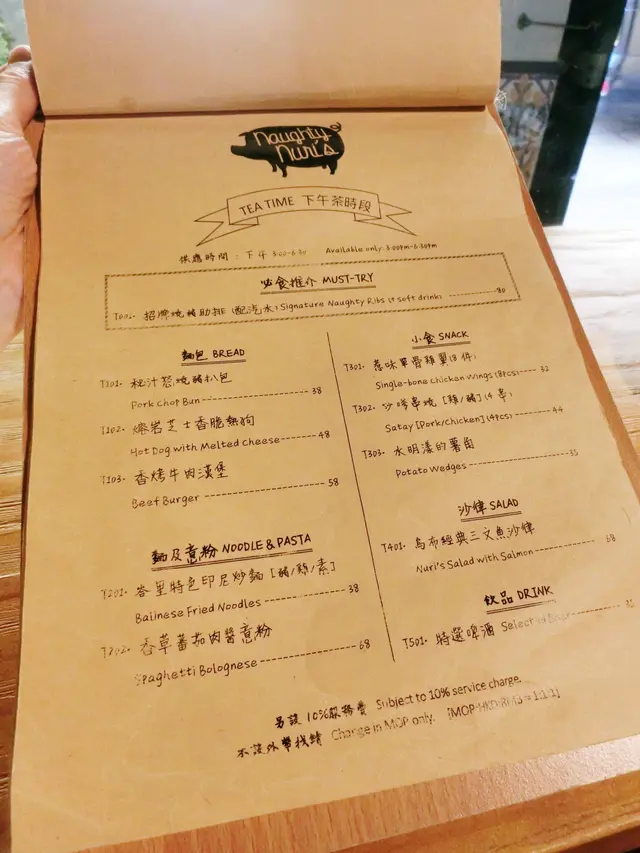 Naughty
Nuri's
TEA TIME 下午茶時段
供應時間：下午 3:00-6:30 Available only 3:00pm-6:30pm
必食推介 MUST-TRY
T001. 招牌燒豬肋排（配汽水）Signature Naughty Ribs (+ soft drink) 90
麵包 BREAD
T101. 秘汁葱燒豬扒包
Pork Chop Bun 38
T102. 熔岩芝士香脆熱狗
Hot Dog with Melted Cheese 48
T103. 香烤牛肉漢堡
Beef Burger 58
麵及意粉 NOODLE & PASTA
T201. 峇里特色印尼炒麵 [豬/雞/素]
Balinese Fried Noodles 38
T202. 香草蕃茄肉醬意粉
Spaghetti Bolognese 68
小食 SNACK
T301. 惹味單骨雞翼 (8件)
Single-bone Chicken Wings (8pcs) 32
T302. 沙嗲串燒 [雞/豬] (4串)
Satay [Pork/Chicken] (4pcs) 44
T303. 水明漾的薯角
Potato Wedges 35
沙律 SALAD
T401. 烏布經典三文魚沙律
Nuri's Salad with Salmon 68
飲品 DRINK
T501. 特選啤酒 Selected Beer
另設10%服務費 Subject to 10% service charge.
不設外幣找續 Change in MOP only. [MOP:HKD:RMB = 1:1:1]